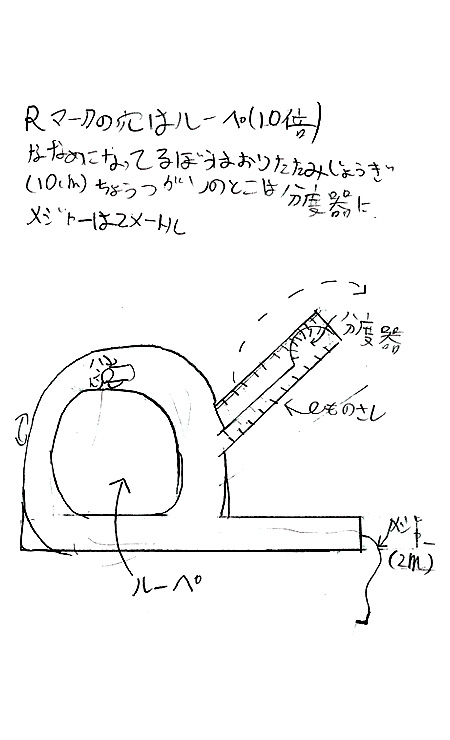 Rマークの穴はルーペ(10倍)
ななめになってるぼうはおりたたみじょうぎ
(10cm) ちょうつがいのとこは分度器に
メジャーは2メートル
分度器
ものさし
メジャー
(2m)
ルーペ